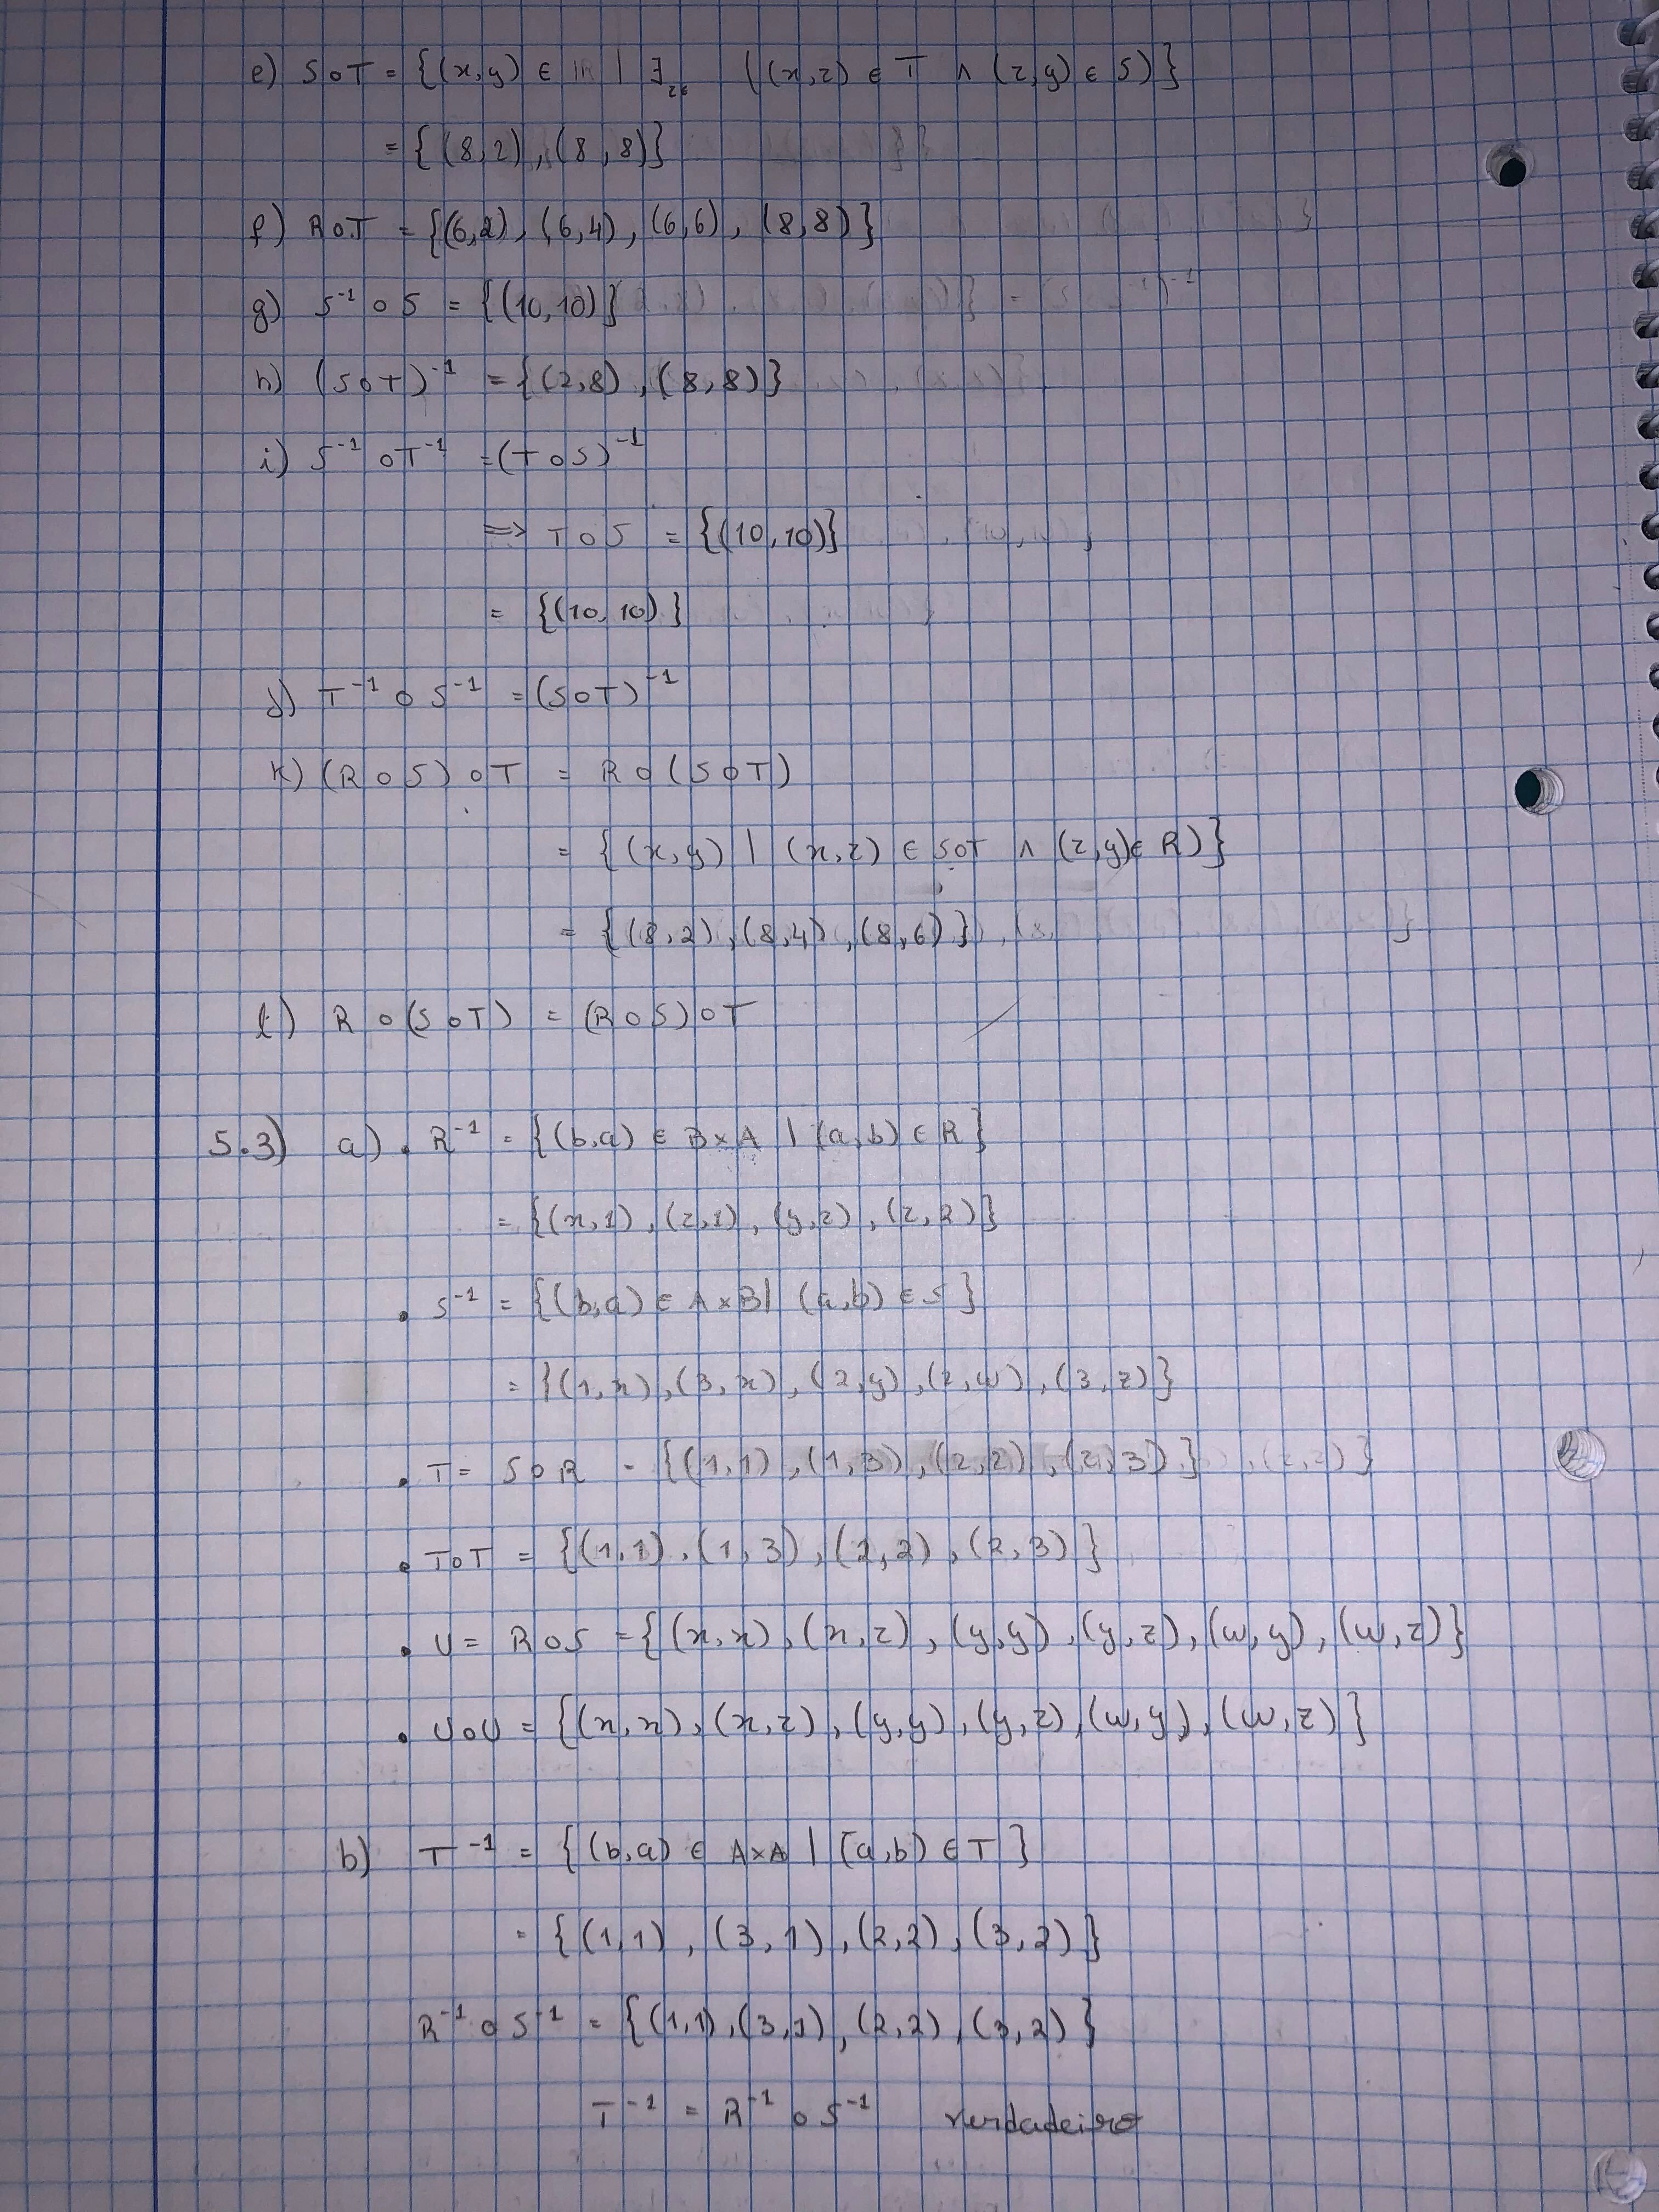 e) S o T = {(x,y) ∈ IR | ∃z∈ ((x,z) ∈ T ∧ (z,y) ∈ S)}
= {(8,2), (8,8)}
f) R o T = {(6,2), (6,4), (6,6), (8,8)}
g) S⁻¹ o S = {(10,10)}
h) (S o T)⁻¹ = {(2,8), (8,8)}
i) S⁻¹ o T⁻¹ = (T o S)⁻¹
=> T o S = {(10,10)}
= {(10,10)}
j) T⁻¹ o S⁻¹ = (S o T)⁻¹
k) (R o S) o T = R o (S o T)
= {(x,y) | (x,z) ∈ S o T ∧ (z,y) ∈ R)}
= {(8,2), (8,4), (8,6)}
l) R o (S o T) = (R o S) o T
5.3) a) • R⁻¹ = {(b,a) ∈ B×A | (a,b) ∈ R}
= {(x,1), (z,1), (y,2), (z,2)}
• S⁻¹ = {(b,a) ∈ A×B | (a,b) ∈ S}
= {(1,x), (3,x), (2,y), (2,w), (3,z)}
• T = S o R = {(1,1), (1,3), (2,2), (2,3)}
• T o T = {(1,1), (1,3), (2,2), (2,3)}
• U = R o S = {(x,x), (x,z), (y,y), (y,z), (w,y), (w,z)}
• U o U = {(x,x), (x,z), (y,y), (y,z), (w,y), (w,z)}
b) T⁻¹ = {(b,a) ∈ A×A | (a,b) ∈ T}
= {(1,1), (3,1), (2,2), (3,2)}
R⁻¹ o S⁻¹ = {(1,1), (3,1), (2,2), (3,2)}
T⁻¹ = R⁻¹ o S⁻¹ verdadeiro